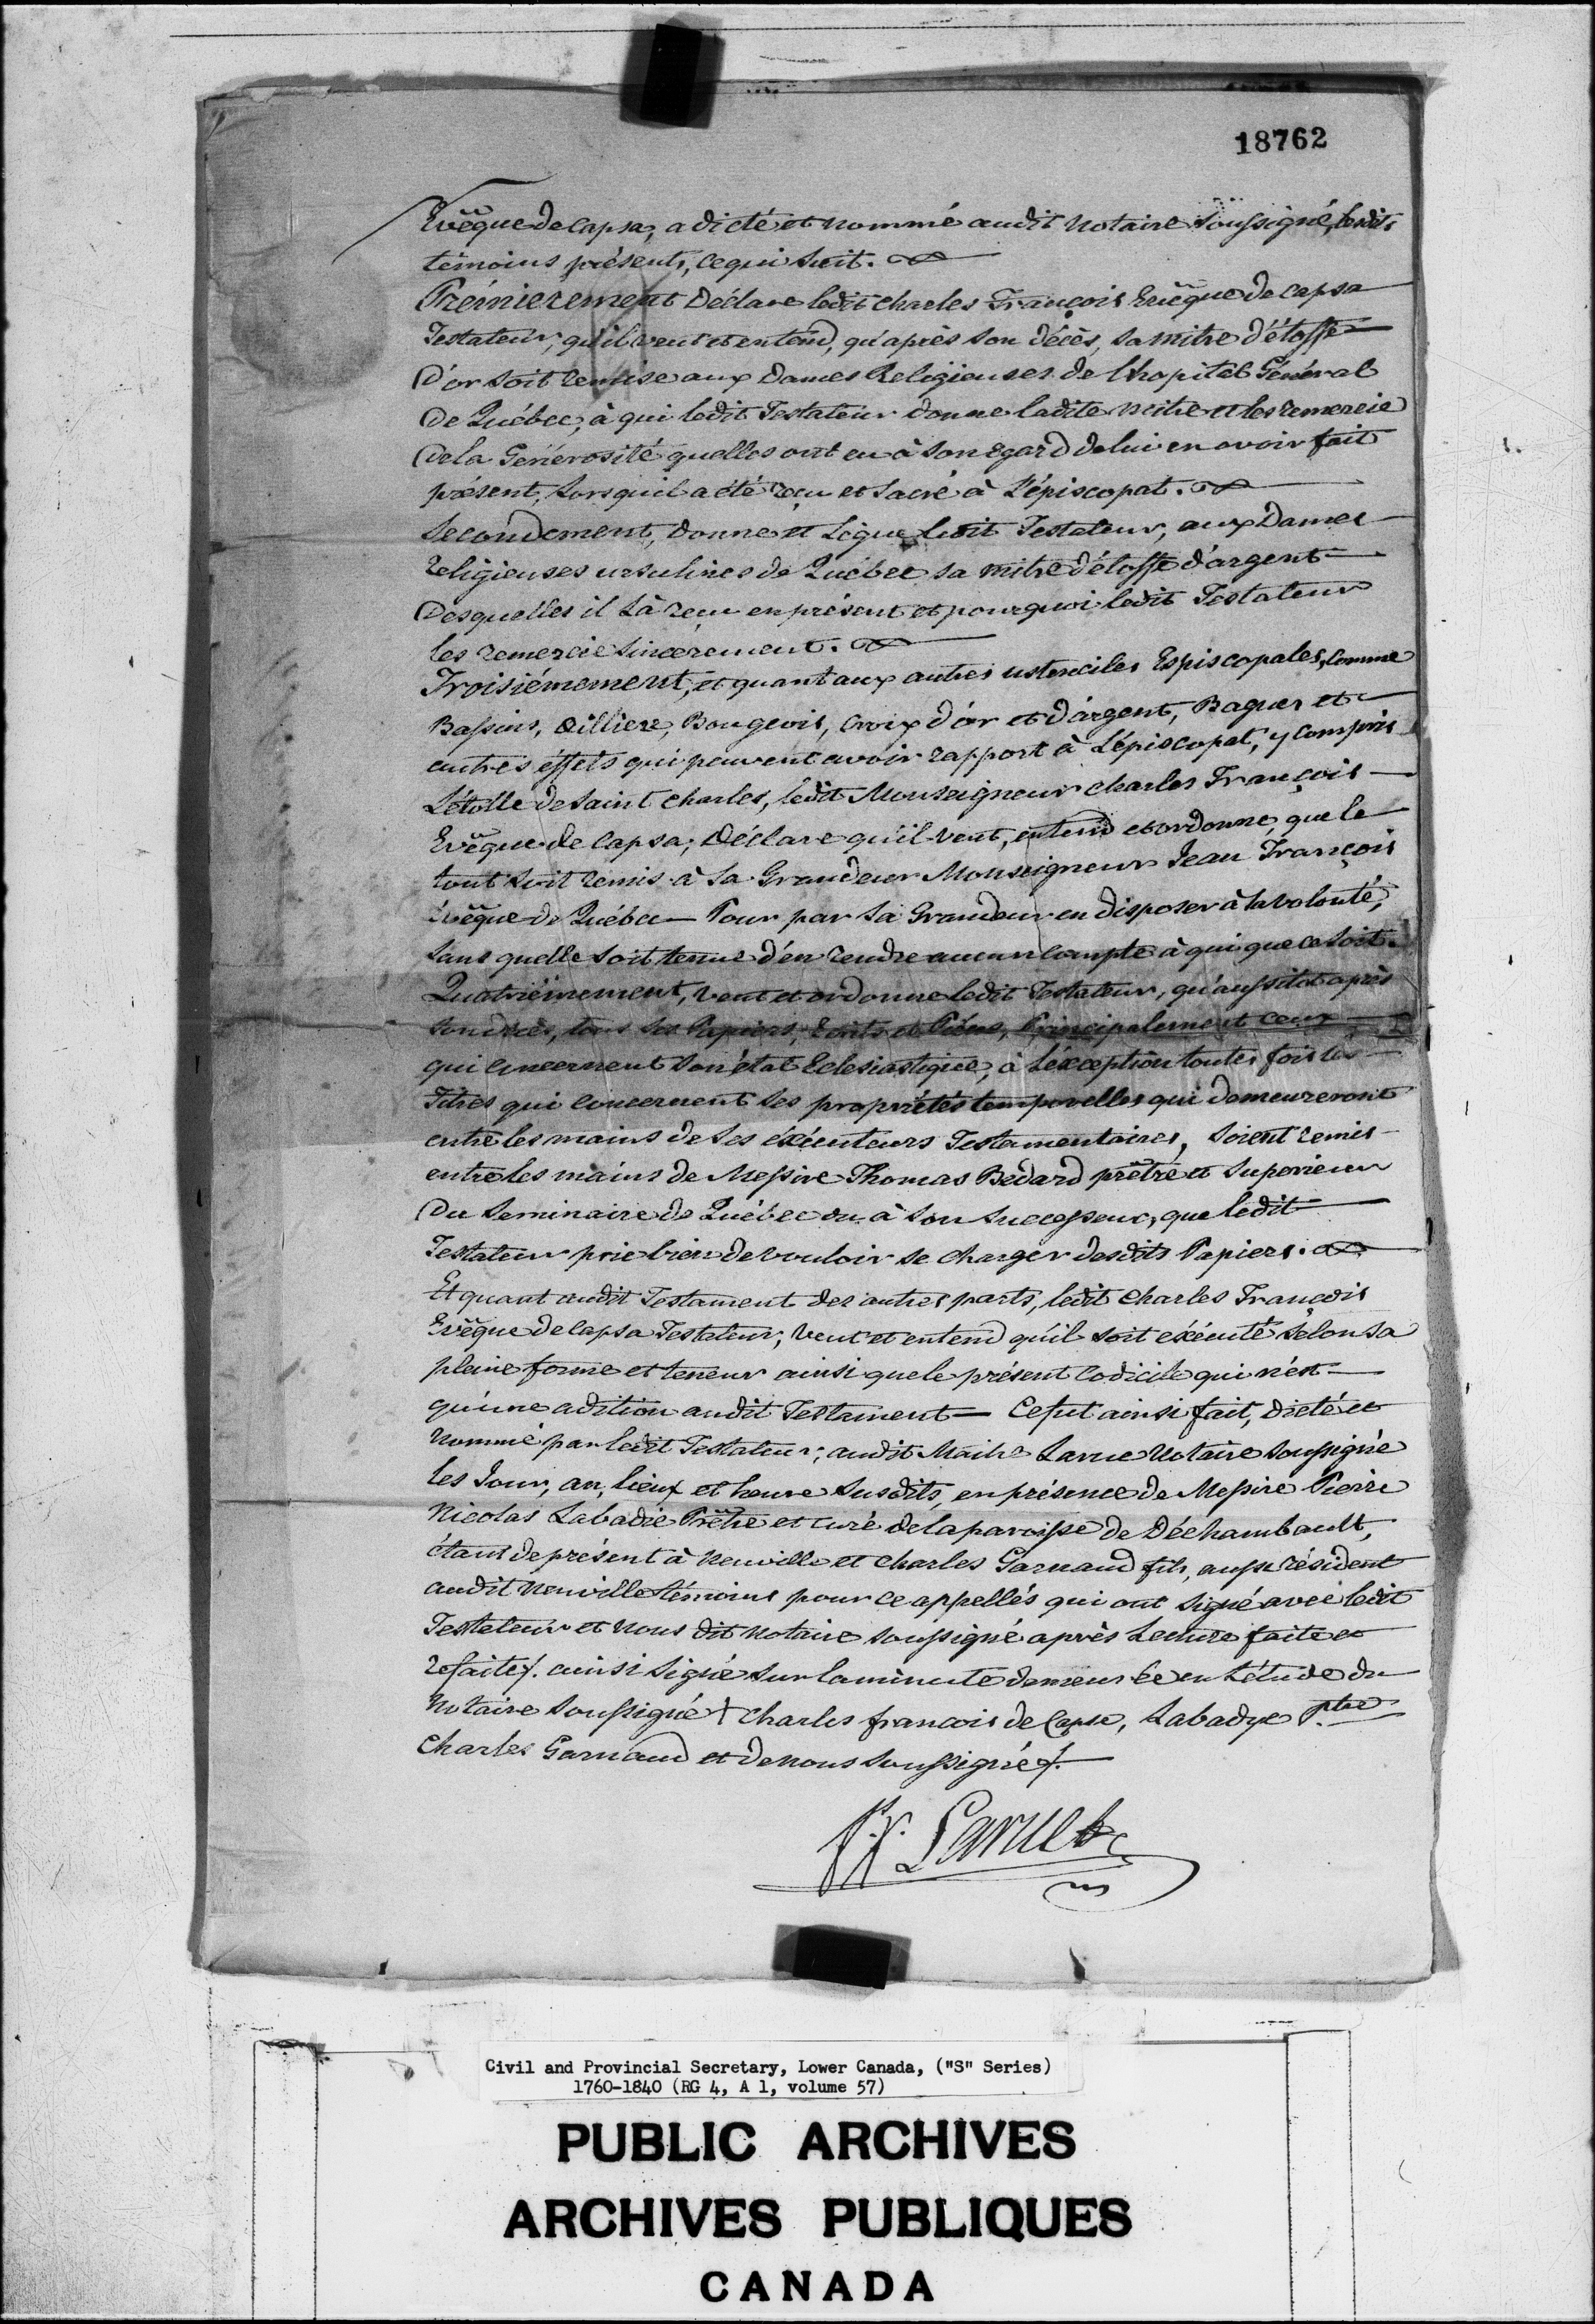 18762
Evêque de Capsa, a dicté et nommé audit Notaire soussigné, lesdits
témoins présents, ce qui suit.
Prémierement Déclare ledit Charles François Evêque de Capsa
Testateur, qu'il veut et entend, qu'après son décès, sa mitre d'étoffe
D'or soit remise aux Dames Religieuses de l'hopital Général
De Québec, à qui ledit Testateur donne ladite mitre et les remercie
De la Génerosité quelles ont eu à son egard de lui en avoir fait
présent, lorsqu'il a été reçu et sacré à L'épiscopat.
Secondement, donne et Legue ledit Testateur, aux Dames
Religieuses ursulines de Québec sa mitre d'étoffe d'argent
Desquelles il l'à reçu en présent et pourquoi ledit Testateur
les remercie sincèrement.
Troisiémement, et quant aux autres ustenciles Espiscopales, comme
Bassins, Aillière, Bougeoir, Croix d'or et d'argent, Bagues et
autres éffets qui peuvent avoir rapport à L'épiscopat, y compris
L'étolle de Saint Charles, ledit Monseigneur Charles François
Evêque de Capsa; Déclare qu'il veut, entend et ordonne, que le
tout soit remis à Sa Grandeur Monseigneur Jean François
Evêque de Québec — Pour par Sa Grandeur en disposer à sa volonté,
sans quelle soit tenue d'en rendre aucun compte à qui que ce soit.
Quatriémement, veut et ordonne ledit Testateur, qu'aussitot après
son décès, tous ses Papiers, Ecrits et Piéces, Principalement ceux
qui concernent son état Eclesiastique, à L'exception toutes fois les
Titres qui concernent ses propriétés temporelles qui demeureront
entre les mains de ses éxécuteurs Testamentaires, soient remis
entre les mains de Messire Thomas Bédard prêtre et Superieur
Du Seminaire de Québec ou à son Successeur, que ledit
Testateur prie bien de vouloir se charger desdits Papiers.
Et quant audit Testament des autres parts, ledit Charles François
Evêque de Capsa Testateur, veut et entend qu'il soit éxécuté selon sa
pleine forme et teneur ainsi que le présent Codicile qui n'est
qu'une adition audit Testament — Ce fut ainsi fait, dicté et
nommé par ledit Testateur, audit Maitre Larue Notaire soussigné
les Jour, an, lieux et heure susdits, en présence de Messire Pierre
Nicolas Labadie Prêtre et curé de la paroisse de Déchambault,
étant de présent à Neuville et Charles Garnaud fils, aussi résident
audit Neuville témoins pour ce appellés qui ont signé avec ledit
Testateur et nous dit Notaire soussigné après Lecture faite et
refaite. ainsi signé sur la minute demeurée en L'étude du
Notaire Soussigné + Charles françois de Capse, Labadye Ptre
Charles Garnaud et de nous soussigné.
F.X. Larue
Civil and Provincial Secretary, Lower Canada, ("S" Series)
1760-1840 (RG 4, A 1, volume 57)
PUBLIC ARCHIVES
ARCHIVES PUBLIQUES
CANADA